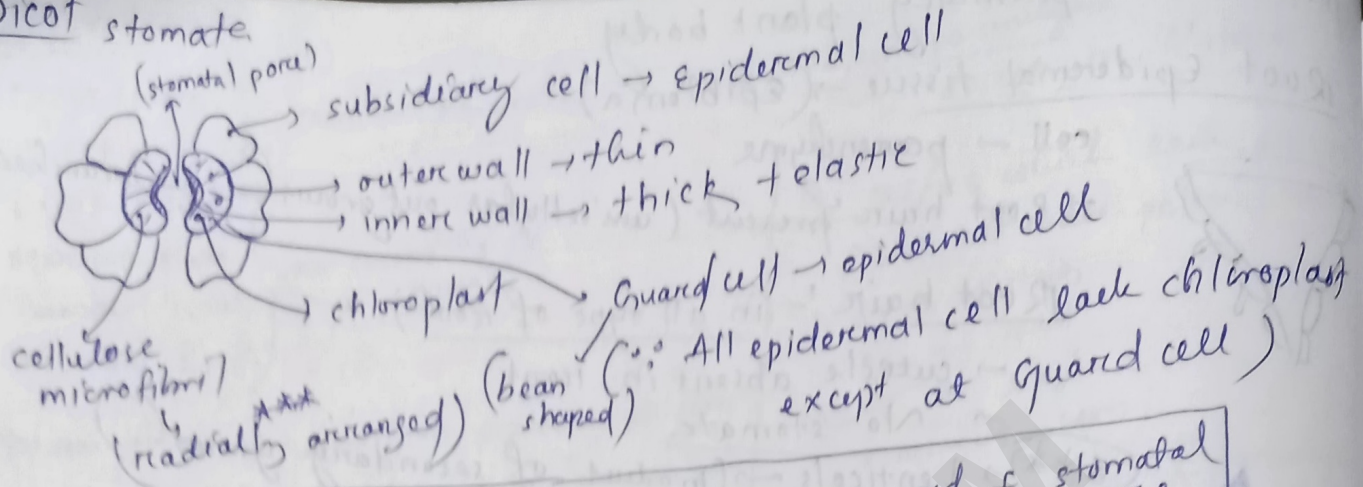 Dicot stomate
(stomatal pore)
subsidiary cell → Epidermal cell
outer wall → thin
inner wall → thick + elastic
chloroplast
Guard cell → epidermal cell
(bean shaped)
(∵ All epidermal cell lack chloroplast
except at Guard cell)
cellulose
microfibril
(radially arranged)
stomatal